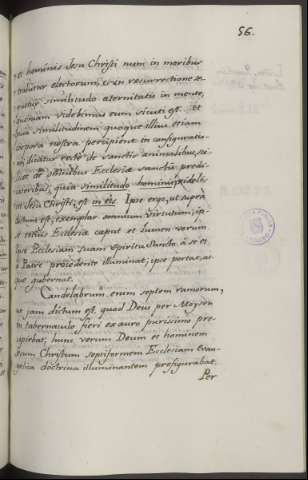 56.
et hominis Jesu Christi nunc in moribus
electorum, et in resurrectione se-
similitudo aeternitatis in mente,
quoniam videbimus eum sicuti est. et
similitudinem quoque illius etiam
corpora nostra percipiunt in
dicatur recte de sanctis animalibus, sci-
licet de omnibus Ecclesiae sanctis praedi-
catoribus, quia similitudo hominis, scilicet
Jesu Christi, est in eis. Ipse ergo, ut supra
dictum est, exemplar omnium virtutum, ip-
se totius Ecclesiae caput et lumen verum,
Ecclesiam suam Spiritu Sancto à se et
Patre procedente illuminat, ipse portat, ip-
se gubernat.
Candelabrum enim septem ramorum,
ut jam dictum est, quod Deus per Moysen
in tabernaculo fieri ex auro purissimo prae-
cipiebat, hunc verum Deum et hominem
Jesum Christum septiformem Ecclesiam evan-
gelica doctrina illuminantem praefigurabat.
Per